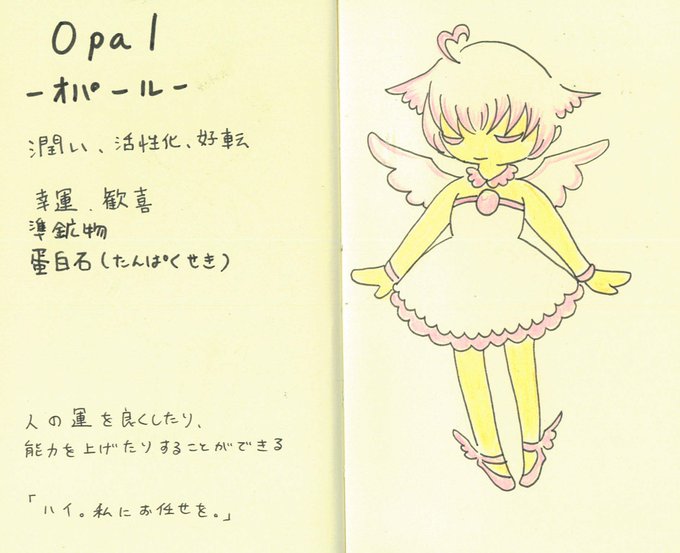 Opal
-オパール-
潤い、活性化、好転
幸運、歓喜
準鉱物
蛋白石(たんぱくせき)
人の運を良くしたり、
能力を上げたりすることができる
「ハイ。私にお任せを。」